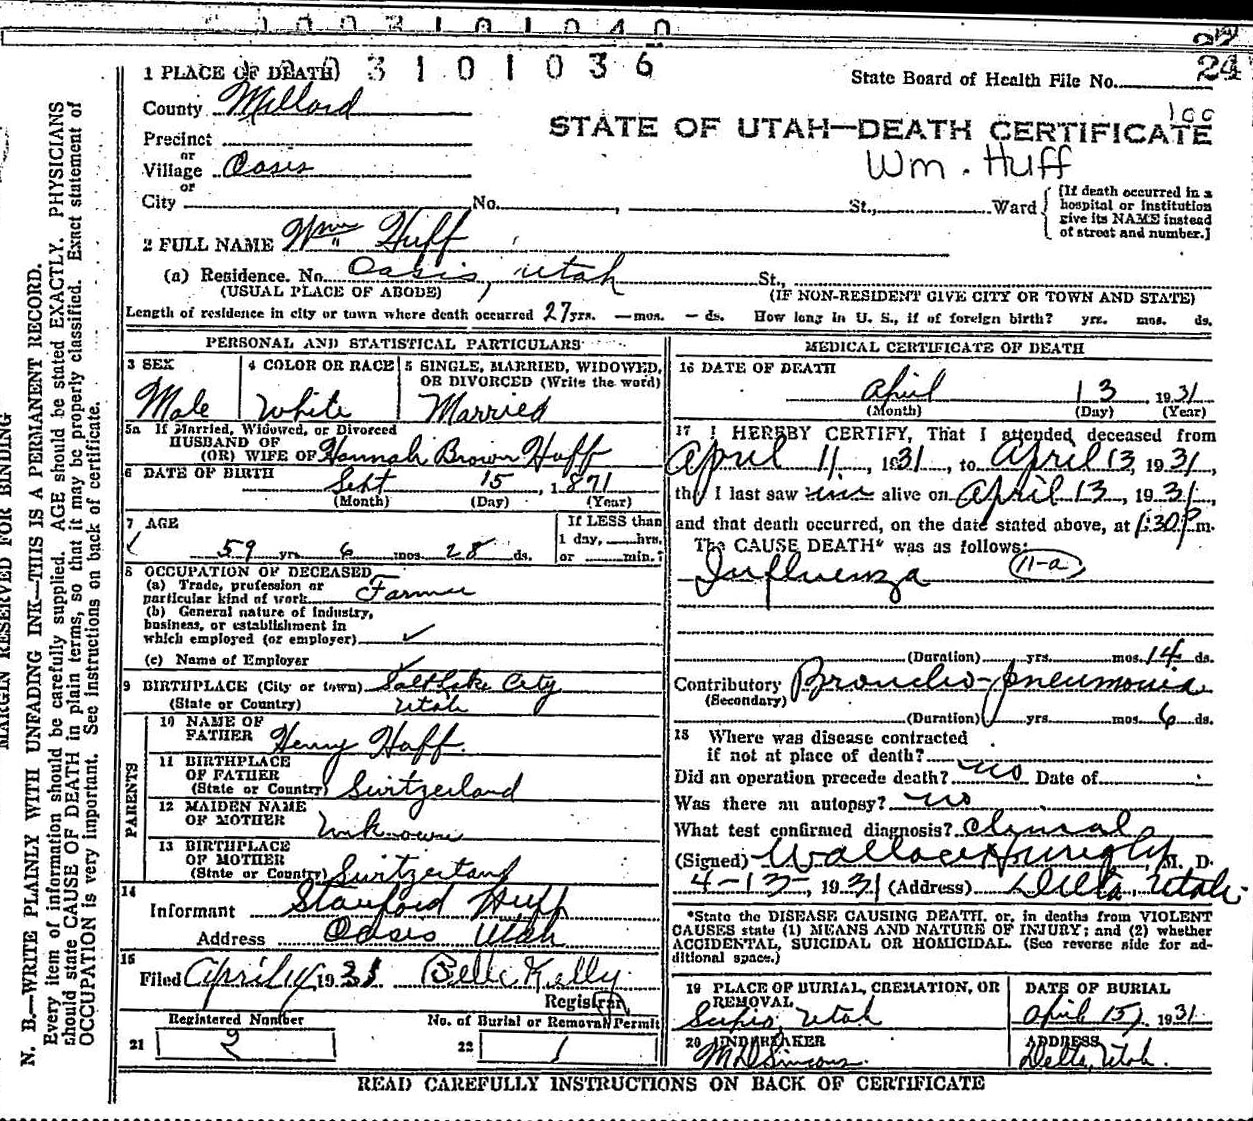 1003101040
1003101036
22
24
1 PLACE OF DEATH
State Board of Health File No.
County Millard
100
STATE OF UTAH—DEATH CERTIFICATE
Precinct
or
Village Oasis
Wm. Huff
or
City No. , St., Ward
[If death occurred in a
hospital or institution
give its NAME instead
of street and number.]
2 FULL NAME Wm Huff
(a) Residence. No. Oasis, Utah St.,
(USUAL PLACE OF ABODE) (IF NON-RESIDENT GIVE CITY OR TOWN AND STATE)
Length of residence in city or town where death occurred 27 yrs. — mos. — ds. How long in U. S., if of foreign birth? yrs. mos. ds.
PERSONAL AND STATISTICAL PARTICULARS
3 SEX
Male
4 COLOR OR RACE
White
5 SINGLE, MARRIED, WIDOWED,
OR DIVORCED (Write the word)
Married
5a If Married, Widowed, or Divorced
HUSBAND OF
(OR) WIFE OF Hannah Brown Huff
6 DATE OF BIRTH Sept 15, 1871
(Month) (Day) (Year)
7 AGE
59 yrs 6 mos. 28 ds.
If LESS than
1 day, hrs.
or min.?
8 OCCUPATION OF DECEASED
(a) Trade, profession or
particular kind of work Farmer
(b) General nature of Industry,
business, or establishment in
which employed (or employer) ✓
(c) Name of Employer ✓
9 BIRTHPLACE (City or town) Salt Lake City
(State or Country) Utah
PARENTS
10 NAME OF
FATHER Henry Huff.
11 BIRTHPLACE
OF FATHER
(State or Country) Switzerland
12 MAIDEN NAME
OF MOTHER Unknown
13 BIRTHPLACE
OF MOTHER
(State or Country) Switzerland
14
Informant Stanford Huff
Address Oasis Utah
15
Filed April 1931 Belle Kelly
Registrar
Registered Number No. of Burial or Removal Permit
21 2 22 1
MEDICAL CERTIFICATE OF DEATH
16 DATE OF DEATH
April 13, 1931
(Month) (Day) (Year)
17 I HEREBY CERTIFY, That I attended deceased from
April 11, 1931, to April 13, 1931,
that I last saw him alive on April 13, 1931,
and that death occurred, on the date stated above, at 1:30 P m.
The CAUSE DEATH* was as follows:
Influenza 11-a
(Duration) yrs. mos. 14 ds.
Contributory Broncho-pneumonia
(Secondary)
(Duration) yrs mos 6 ds.
18 Where was disease contracted
if not at place of death?
Did an operation precede death? no Date of
Was there an autopsy? no
What test confirmed diagnosis? Clinical
(Signed) M. D.
4-13-, 1931 (Address) Delta, Utah.
*State the DISEASE CAUSING DEATH, or, in deaths from VIOLENT
CAUSES state (1) MEANS AND NATURE OF INJURY; and (2) whether
ACCIDENTAL, SUICIDAL OR HOMICIDAL. (See reverse side for ad-
ditional space.)
19 PLACE OF BURIAL, CREMATION, OR
REMOVAL
Scipio, Utah
DATE OF BURIAL
April 15, 1931
20 UNDERTAKER
ADDRESS
Delta, Utah.
READ CAREFULLY INSTRUCTIONS ON BACK OF CERTIFICATE
MARGIN RESERVED FOR BINDING
N. B.—WRITE PLAINLY WITH UNFADING INK—THIS IS A PERMANENT RECORD.
Every item of information should be carefully supplied. AGE should be stated EXACTLY. PHYSICIANS
should state CAUSE OF DEATH in plain terms, so that it may be properly classified. Exact statement of
OCCUPATION is very important. See instructions on back of certificate.